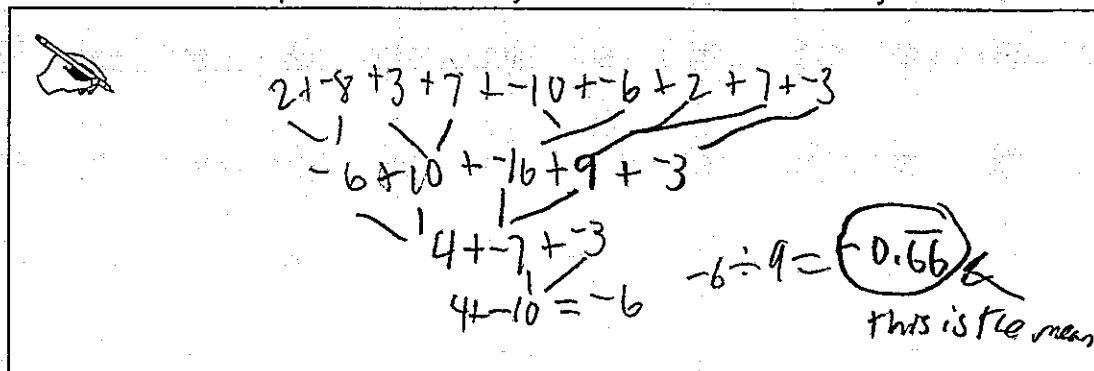 2 + -8 + 3 + 7 + -10 + -6 + 2 + 7 + -3
-6 + 10 + -16 + 9 + -3
4 + -7 + -3
4 + -10 = -6
-6 ÷ 9 = -0.6̅6̅
this is the mean